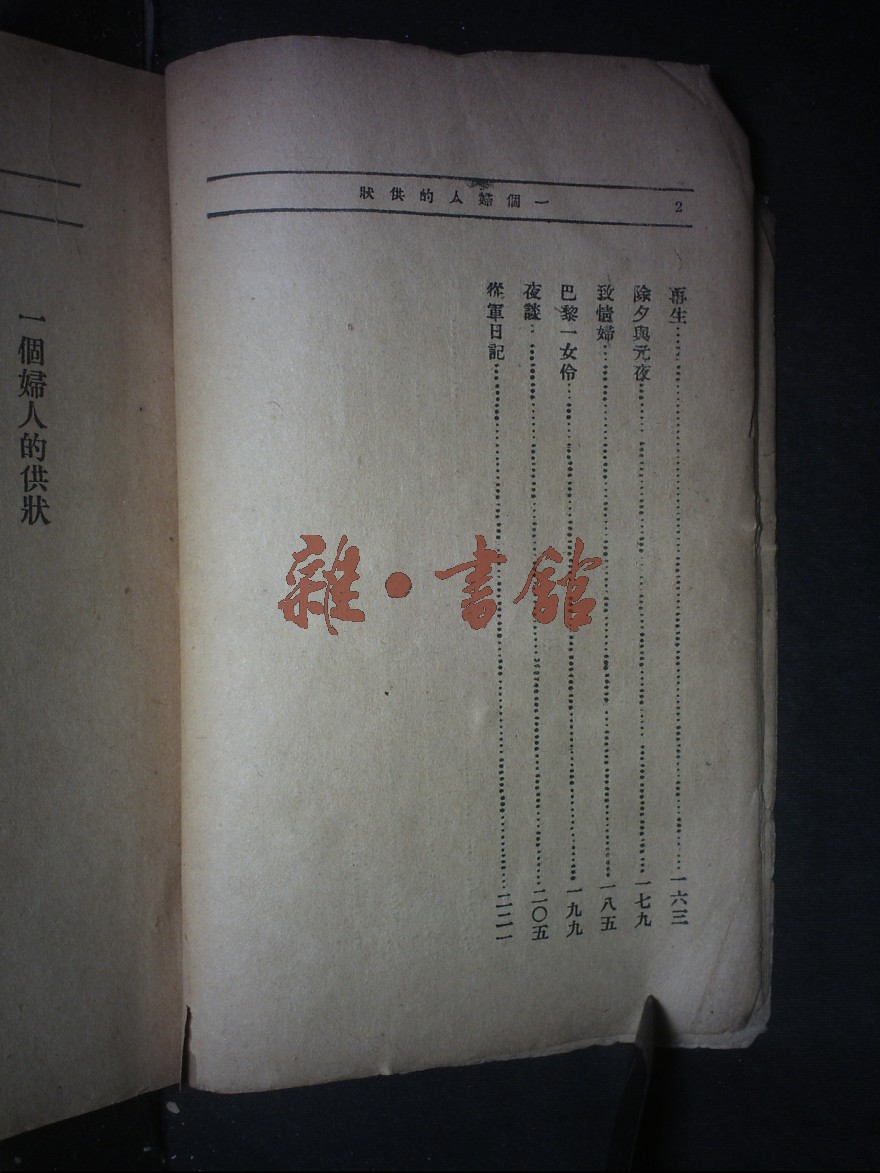 一個婦人的供狀
2
再生……一六三
除夕與元夜……一七九
致情婦……一八五
巴黎一女伶……一九九
夜談……二〇五
從軍日記……二二一
雜·書館
一個婦人的供狀